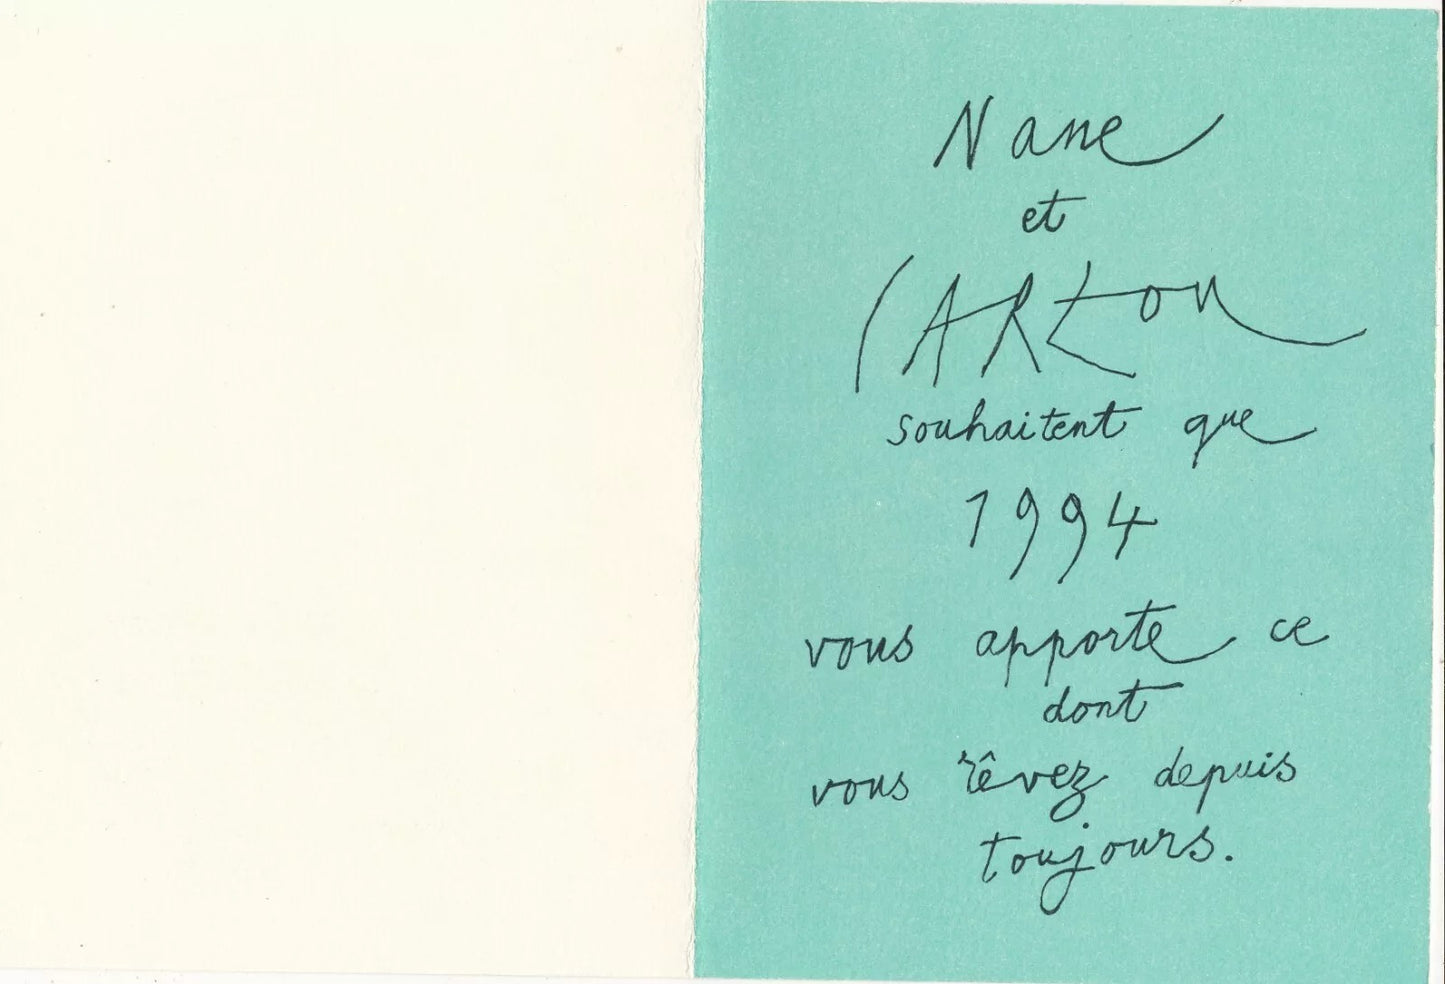 Nane
et
CARZOU
souhaitent que
1994
vous apporte ce
dont
vous rêvez depuis
toujours.